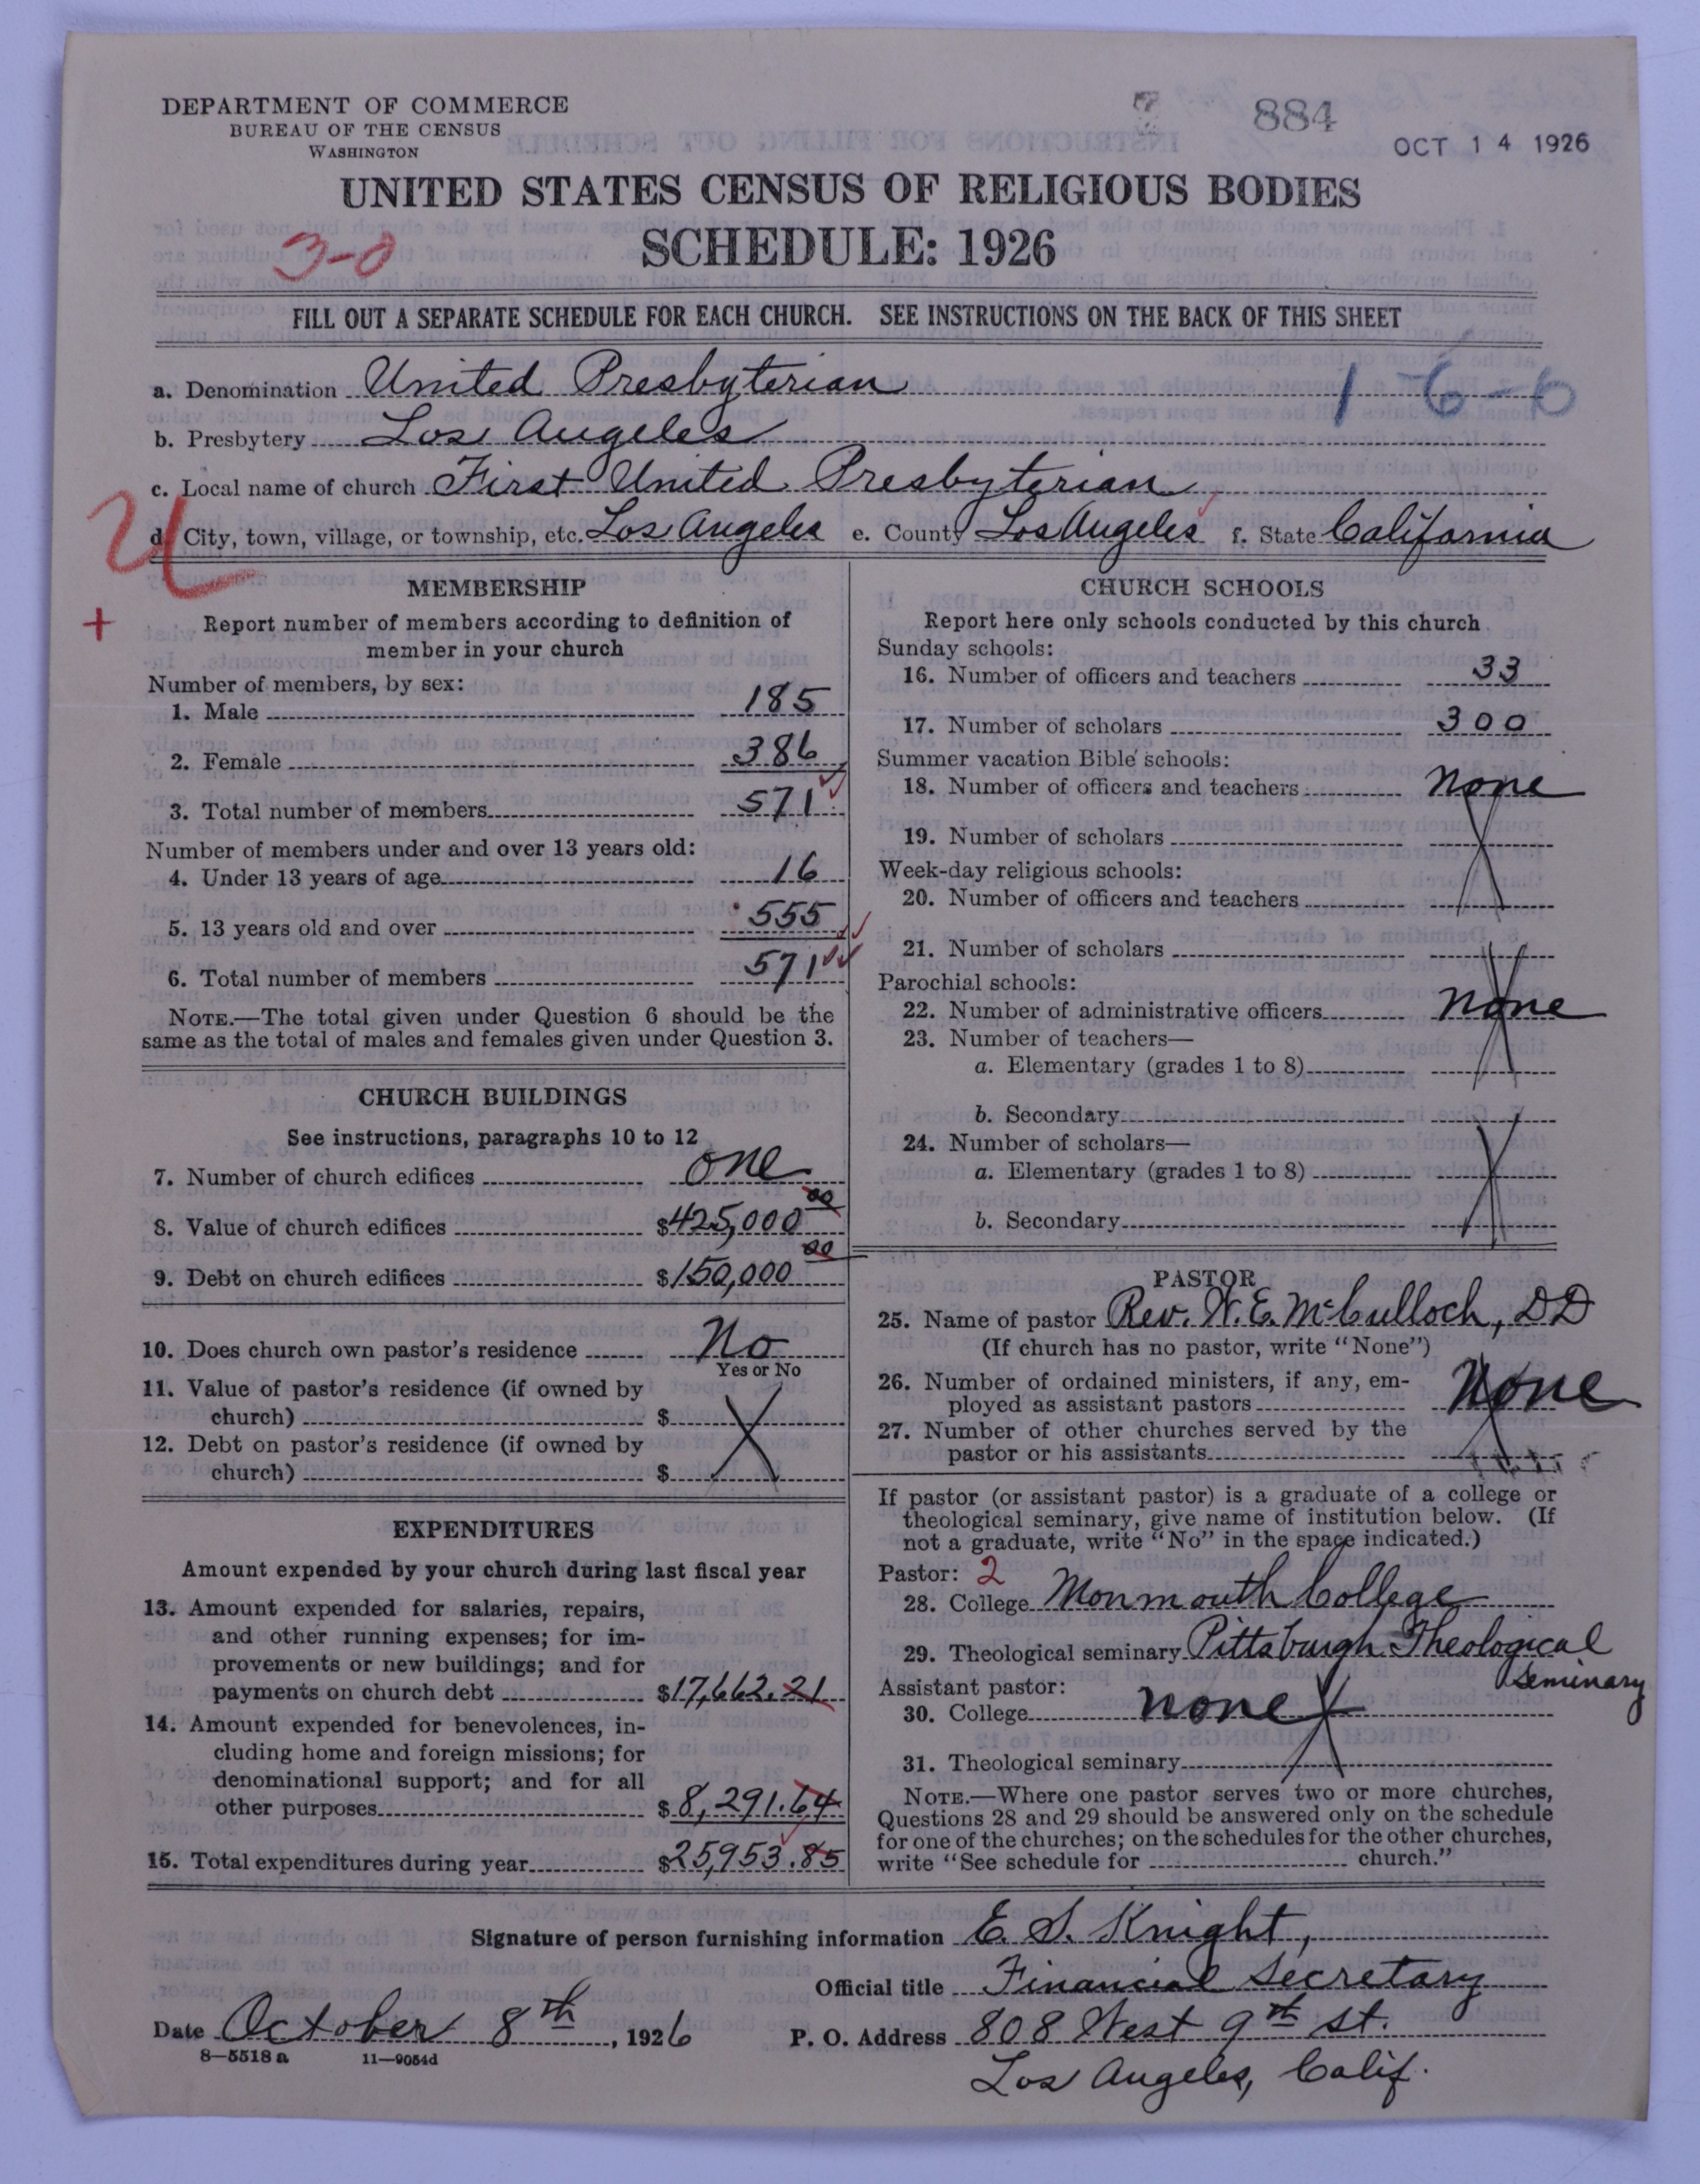 DEPARTMENT OF COMMERCE
BUREAU OF THE CENSUS
WASHINGTON
884
OCT 14 1926
UNITED STATES CENSUS OF RELIGIOUS BODIES
3-0
SCHEDULE: 1926
FILL OUT A SEPARATE SCHEDULE FOR EACH CHURCH. SEE INSTRUCTIONS ON THE BACK OF THIS SHEET
a. Denomination United Presbyterian
1-6-6
b. Presbytery Los Angeles
c. Local name of church First United Presbyterian
d. City, town, village, or township, etc. Los Angeles e. County Los Angeles f. State California
MEMBERSHIP
Report number of members according to definition of
member in your church
Number of members, by sex:
1. Male 185
2. Female 386
3. Total number of members 571
Number of members under and over 13 years old:
4. Under 13 years of age 16
5. 13 years old and over 555
6. Total number of members 571
NOTE.—The total given under Question 6 should be the
same as the total of males and females given under Question 3.
CHURCH BUILDINGS
See instructions, paragraphs 10 to 12
7. Number of church edifices one
8. Value of church edifices $425,000 00
9. Debt on church edifices $150,000 00
10. Does church own pastor's residence No
Yes or No
11. Value of pastor's residence (if owned by
church) $
12. Debt on pastor's residence (if owned by
church) $
EXPENDITURES
Amount expended by your church during last fiscal year
13. Amount expended for salaries, repairs,
and other running expenses; for im-
provements or new buildings; and for
payments on church debt $17,662.21
14. Amount expended for benevolences, in-
cluding home and foreign missions; for
denominational support; and for all
other purposes $8,291.64
15. Total expenditures during year $25,953.85
CHURCH SCHOOLS
Report here only schools conducted by this church
Sunday schools:
16. Number of officers and teachers 33
17. Number of scholars 300
Summer vacation Bible schools:
18. Number of officers and teachers none
19. Number of scholars
Week-day religious schools:
20. Number of officers and teachers
21. Number of scholars
Parochial schools:
22. Number of administrative officers none
23. Number of teachers—
a. Elementary (grades 1 to 8)
b. Secondary
24. Number of scholars—
a. Elementary (grades 1 to 8)
b. Secondary
PASTOR
25. Name of pastor Rev. W. E. McCulloch, DD
(If church has no pastor, write "None")
26. Number of ordained ministers, if any, em-
ployed as assistant pastors None
27. Number of other churches served by the
pastor or his assistants
If pastor (or assistant pastor) is a graduate of a college or
theological seminary, give name of institution below. (If
not a graduate, write "No" in the space indicated.)
Pastor: 2
28. College Monmouth College
29. Theological seminary Pittsburgh Theological
Seminary
Assistant pastor:
30. College none
31. Theological seminary
NOTE.—Where one pastor serves two or more churches,
Questions 28 and 29 should be answered only on the schedule
for one of the churches; on the schedules for the other churches,
write "See schedule for church."
Signature of person furnishing information E. S. Knight,
Official title Financial Secretary
Date October 8th, 1926 P. O. Address 808 West 9th St.
8—5518 a 11—9054d
Los Angeles, Calif.